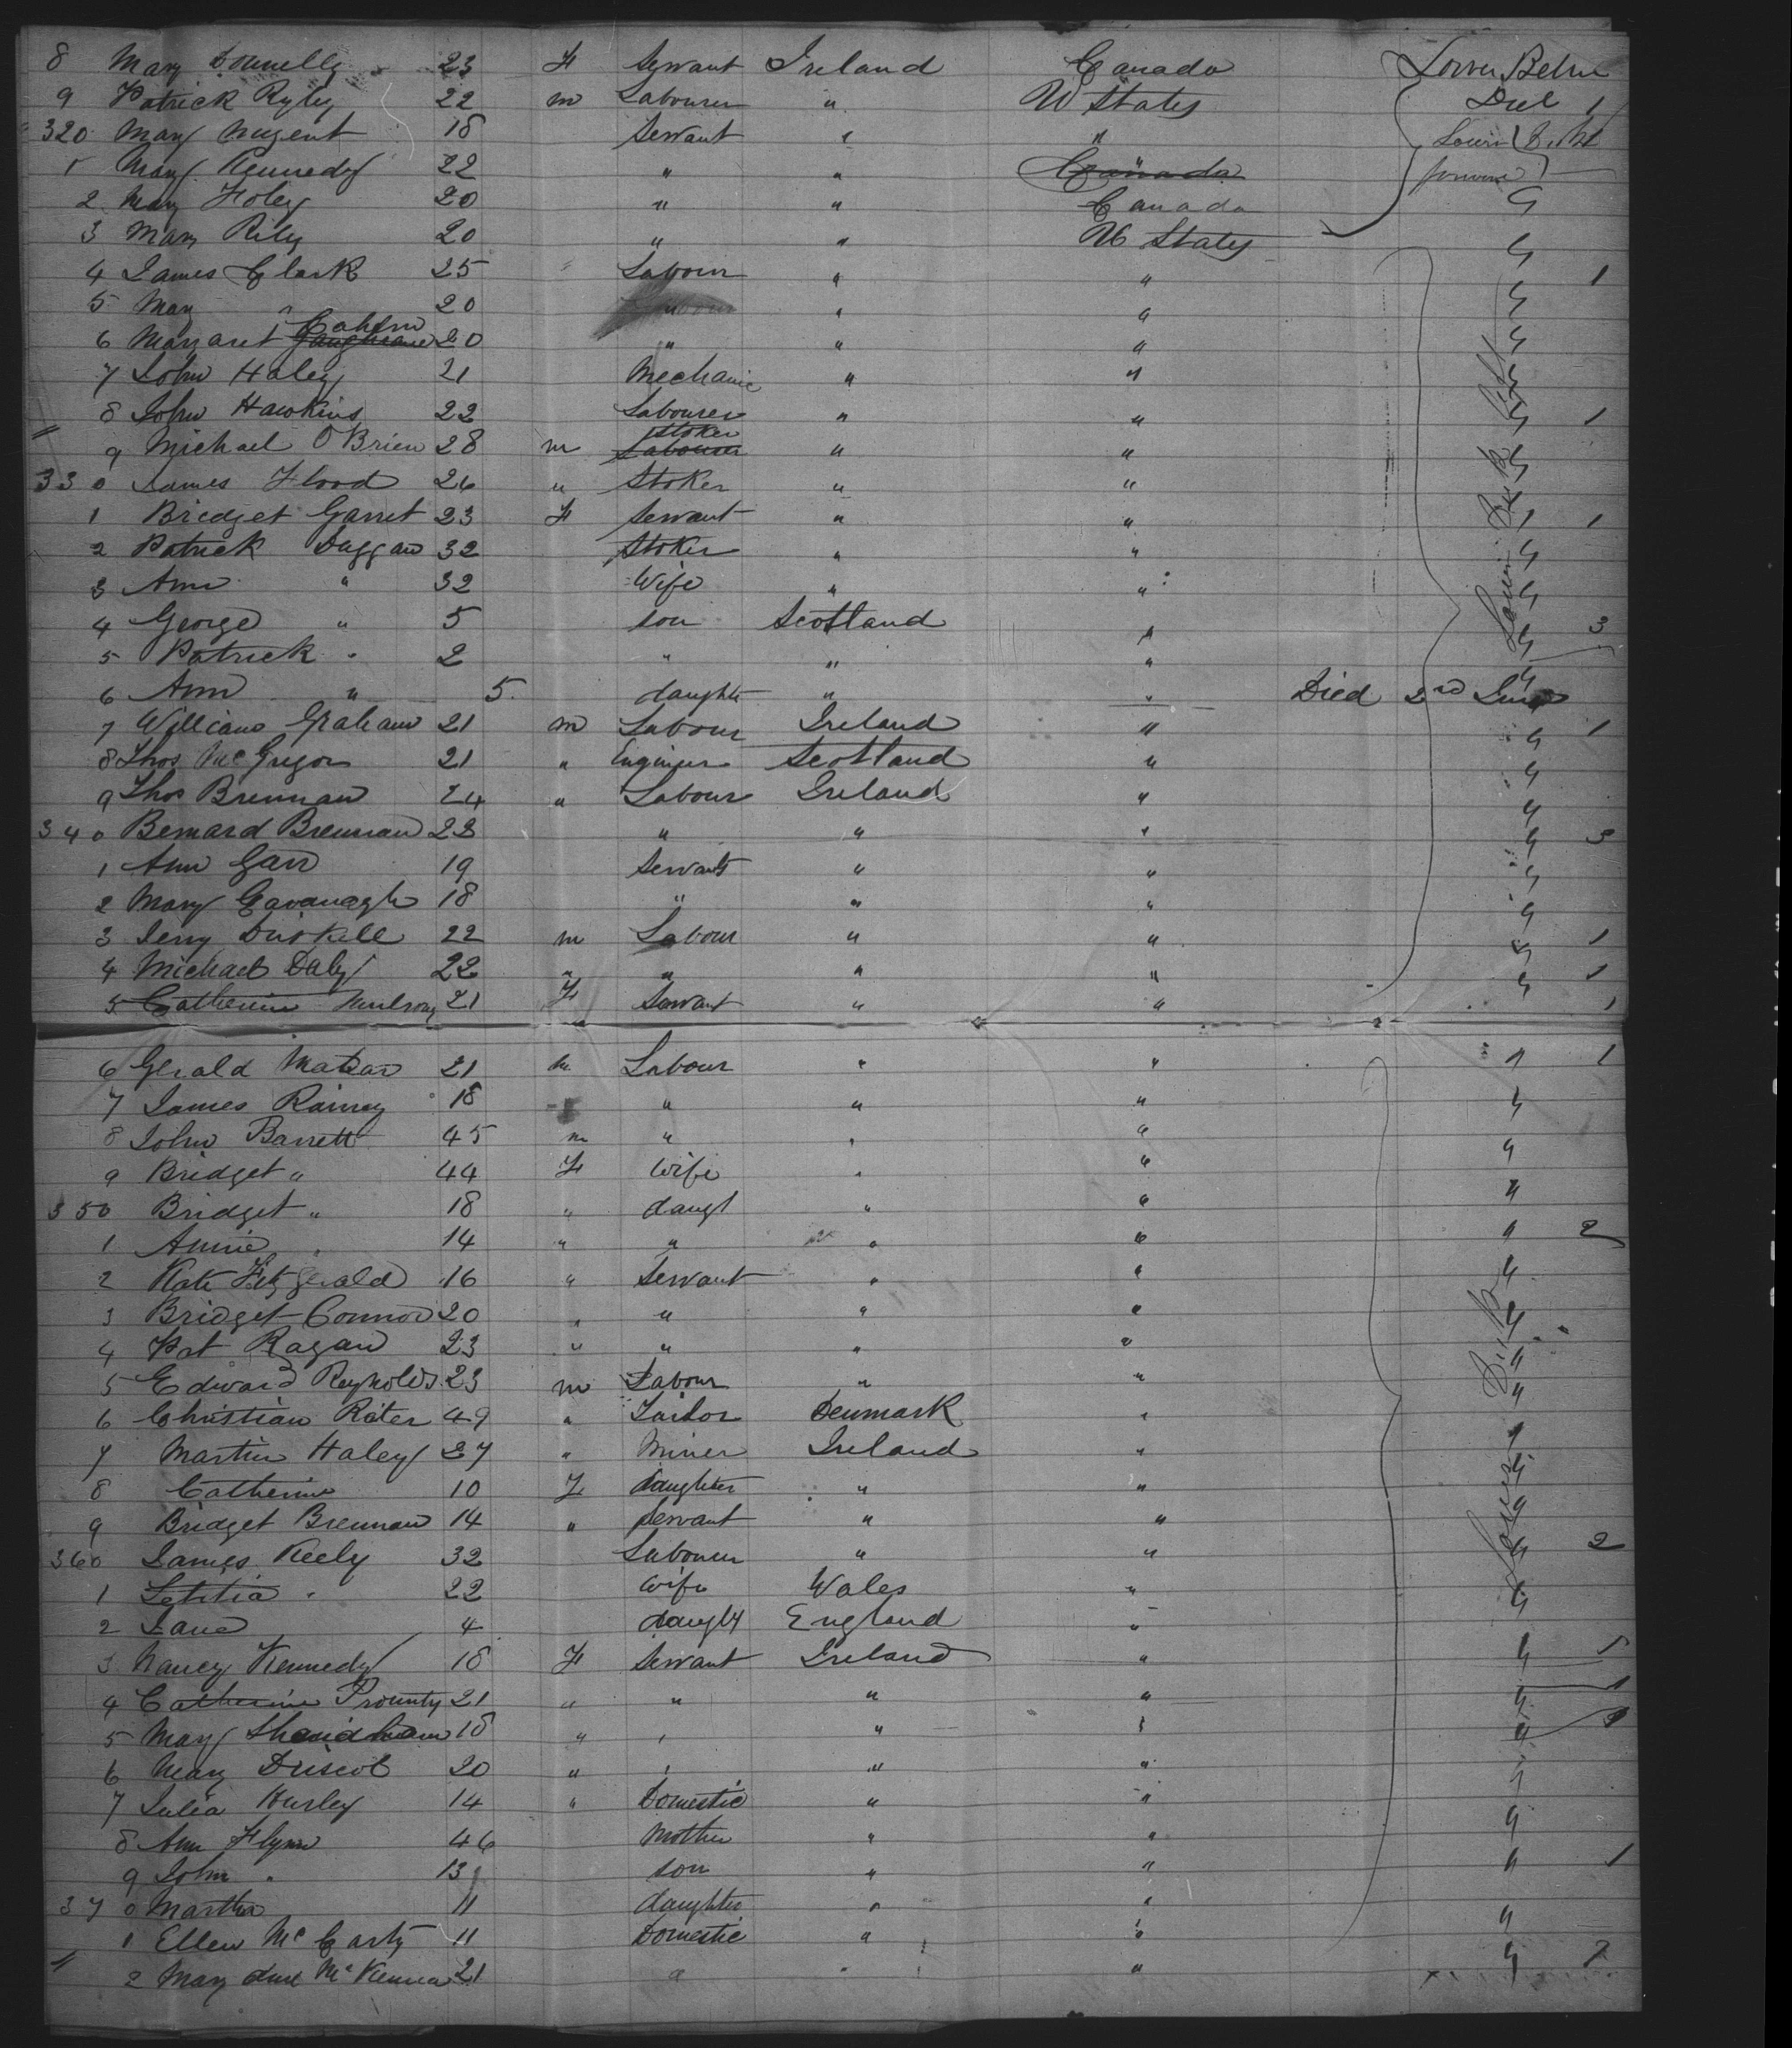 8 Mary Donnelly 23 F Servant Ireland Canada Lower Betw
9 Patrick Ryley 22 m Labourer " U States Dec 1
320 Mary Nugent 18 Servant " "
1 Mary Kennedy 22 " " Canada
2 Mary Foley 20 " " Canada "
3 Mary Rily 20 " " U States "
4 James Clark 25 Labour " " " 1
5 Mary " 20 " " " "
6 Margaret Cahern 20 " " " "
7 John Haley 21 Mechanic " " "
8 John Hawkins 22 Labourer " " " 1
9 Michael O'Brien 28 m Labourer Stoker " " "
330 James Flood 26 " Stoker " "
1 Bridget Garret 23 F Servant " " " 1
2 Patrick Duggan 32 Stoker " " "
3 Ann " 32 Wife " " "
4 George " 5 son Scotland " " 3
5 Patrick " 2 " " " "
6 Ann " 5 daughte " " Died 2nd June
7 William Graham 21 m Labour Ireland " " 1
8 Thos McGregor 21 " Engineer Scotland " "
9 Thos Brennan 24 " Labour Ireland " "
340 Bernard Brennan 23 " " " " 3
1 Ann Garr 19 Servant " " "
2 Mary Cavanagh 18 " " " "
3 Jerry Driskell 22 m Labour " " " 1
4 Michael Daly 22 " " " " " 1
5 Catherine 21 F Servant " " 1
6 Gerald 21 m Labour " " " 1
7 James Rainey 18 " " " "
8 John Barrett 45 m " " " "
9 Bridget " 44 F Wife " " "
350 Bridget " 18 " daugt " " "
1 Annie " 14 " " " " " 2
2 Kate Fitzgerald 16 " Servant " " "
3 Bridget Connor 20 " " " " "
4 Pat Ragan 23 " " " " "
5 Edward Reynolds 23 m Labour " " "
6 Christian Rater 49 " Tailor Denmark "
7 Martin Haley 27 " Miner Ireland " "
8 Catherine 10 F Daughter " " "
9 Bridget Brennan 14 " Servant " " "
360 James Keely 32 Labourer " " " 2
1 Letitia " 22 Wife Wales "
2 Jane 4 daught England " "
3 Nancy Kennedy 18 F Servant Ireland " "
4 Catherine Prounty 21 " " " " " 1
5 Mary 18 " " " " "
6 Mary Driscol 20 " " " " "
7 Julia Hurley 14 " Domestic " "
8 Ann Flynn 46 Mother " " "
9 John " 13 son " " " 1
370 Martha 11 daughter " "
1 Ellen McCarty 11 Domestic " " "
2 Mary Ann McKenna 21 " " " " 2